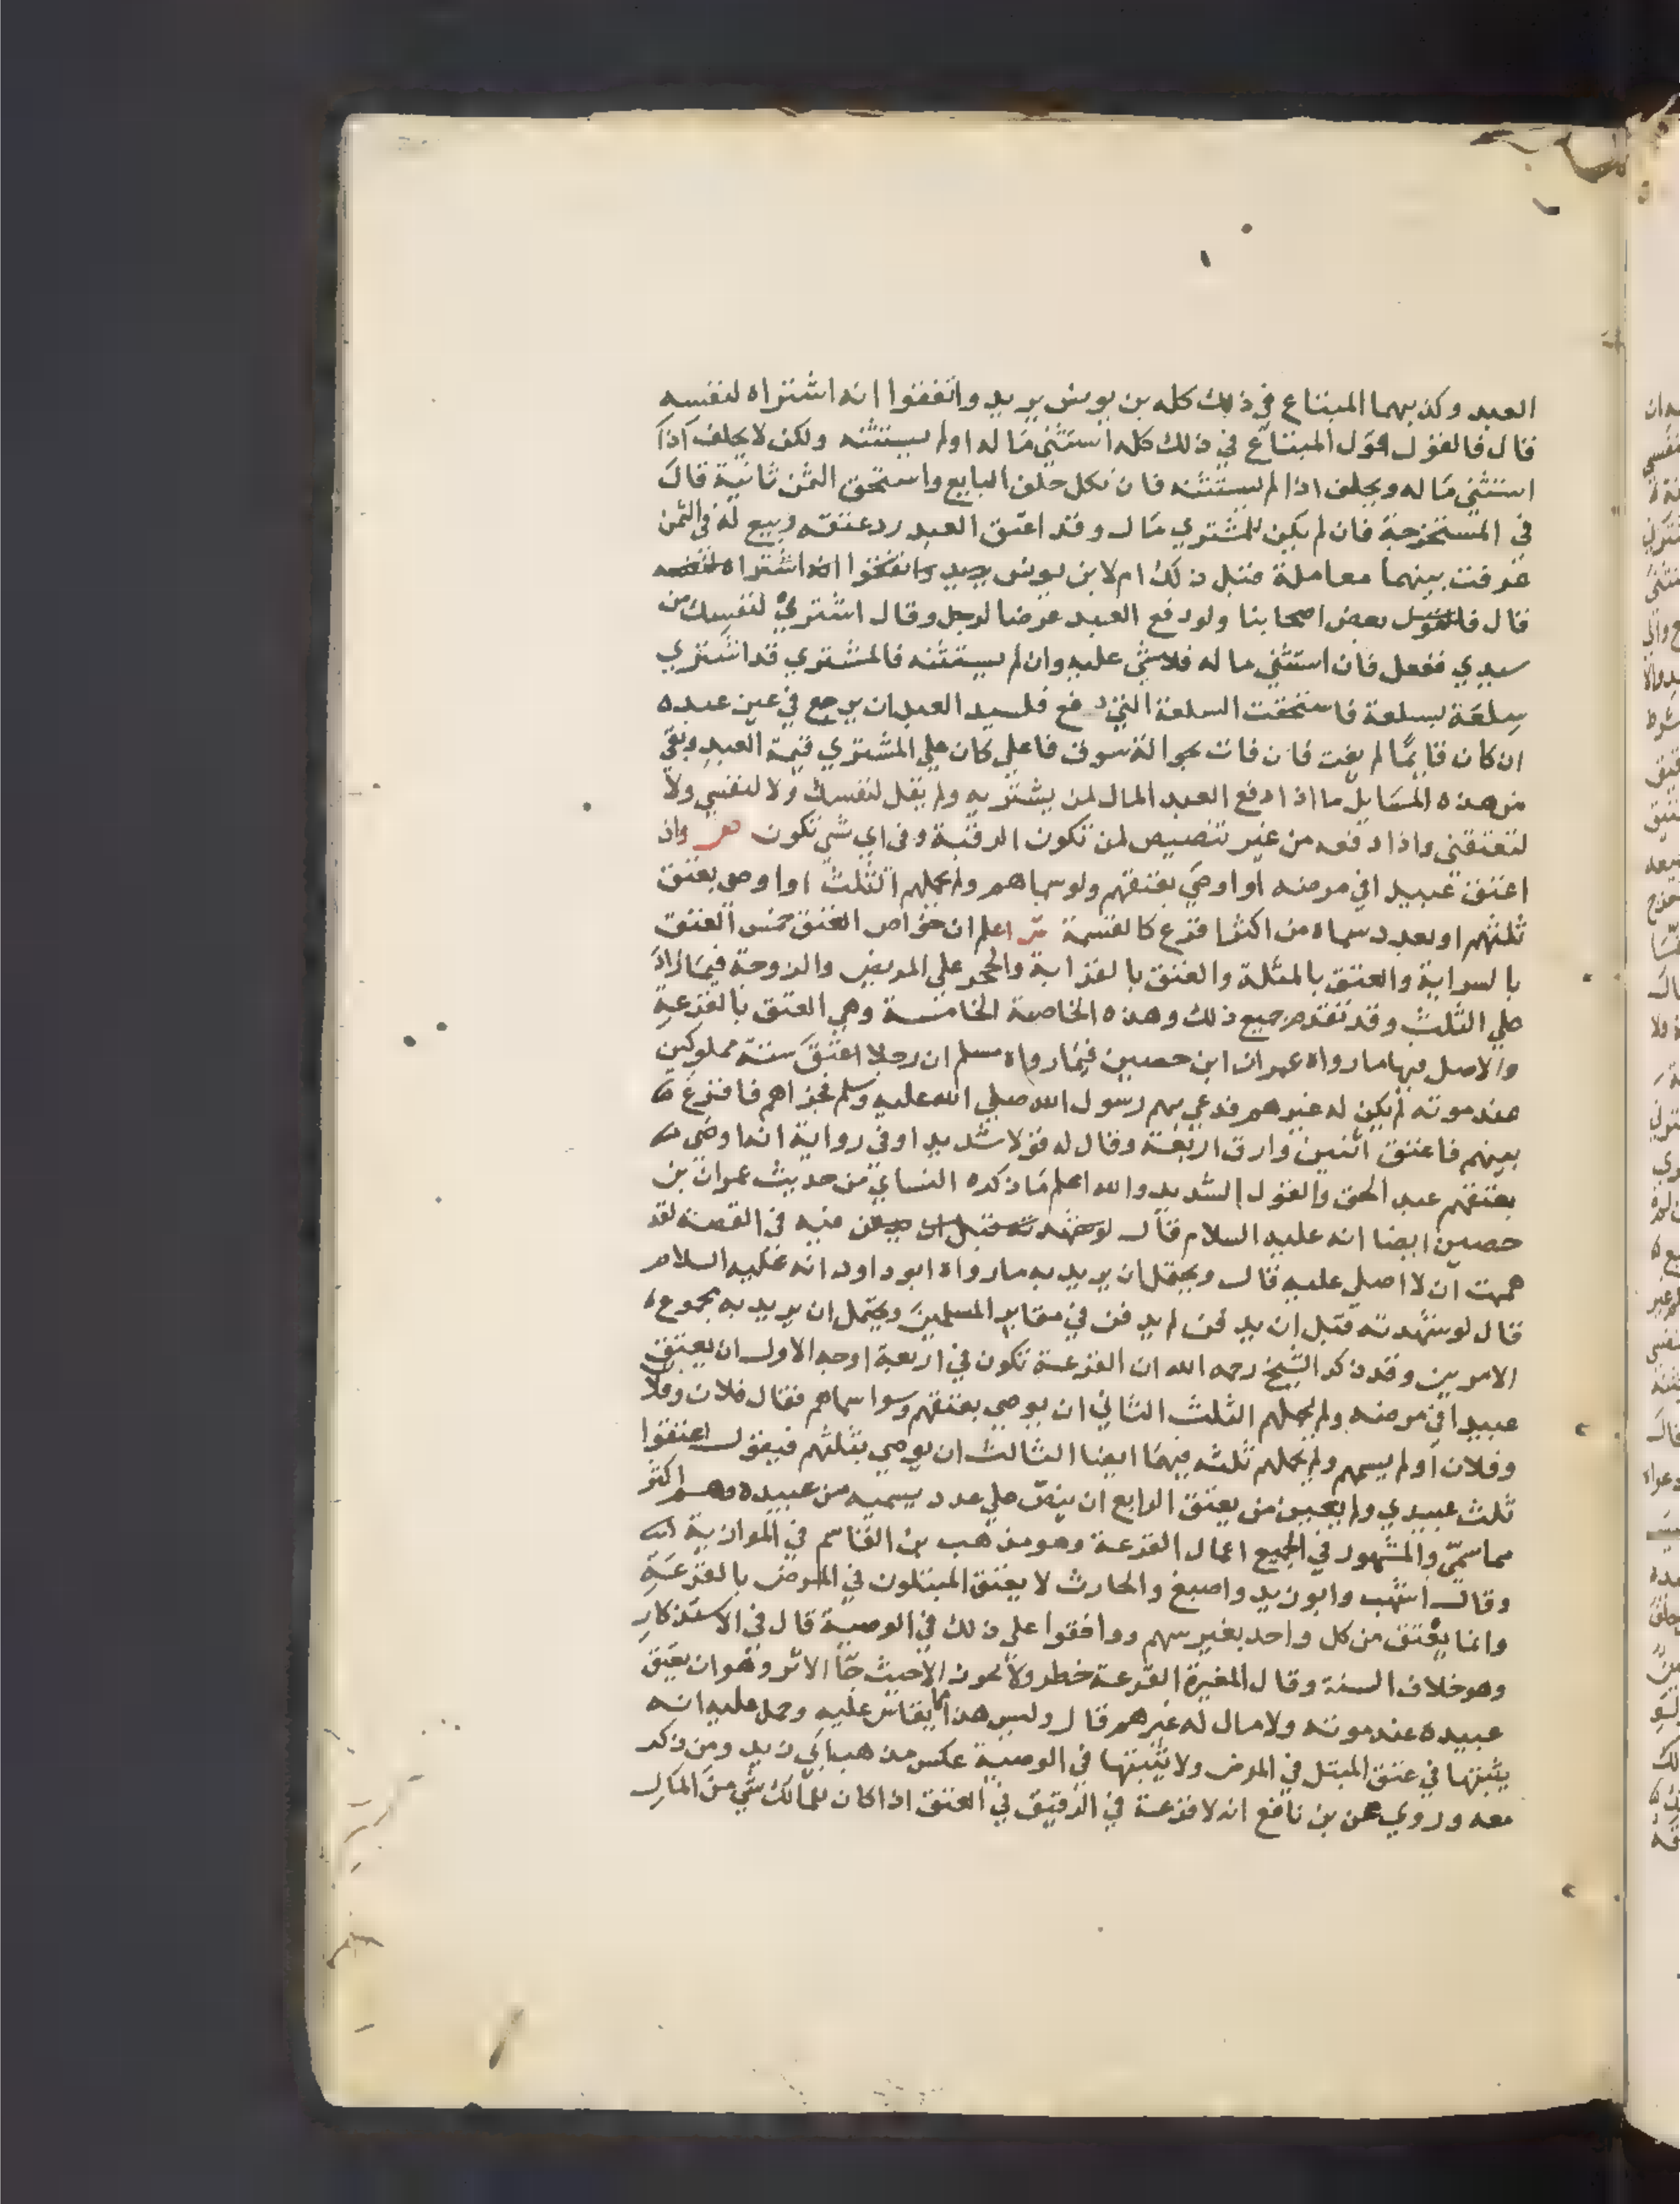 العبد وكذبهما المبتاع في ذلك كله بن يونس يريد واتفقوا انه اشتراه لنفسه
قال فالقول قول المبتاع في ذلك كله استثني ماله اولم يستثنه ولكن لا يحلف اذا
استثني ماله ويحلف اذا لم يستثنه فان نكل حلف البايع واستحق الثمن ثانية قال
في المستخرجة فان لم يكن للمشتري مال وقد اعتق العبد رد عتقه وبيع له في الثمن
عرفت بينهما معاملة قبل ذلك ام لا بن يونس يريد واتفقوا انه اشتراه لنفسه
قال بعض اصحابنا ولو دفع العبد عرضا لرجل وقال اشتري لنفسك من
سيدي ففعل فان استثني ماله فلا شي عليه وان لم يستثنه فالمشتري قد اشتري
سلعة بسلعة فاستحقت السلعة التي دفع فلسيد العبد ان يرجع في عين عبده
ان كان قايما لم يفت فان فات بحوالة سوق فاعلي كان علي المشتري قيمة العبد وبقي
من هذه المسايل ما اذا دفع العبد المال لمن يشتريه ولم يقل لنفسك ولا لنفسي ولا
لتعتقني واذا دفعه من غير تنصيص لمن تكون الرقبة وفي اي شي تكون وان
اعتق عبيدا في مرضه او اوصي بعتقهم ولو سماهم ولم يحملهم الثلث او اوصي بعتق
ثلثهم او بعدد سماه من اكثر اقرع كالقسمة اعلم ان خواص العتق خمس العتق
بالسراية والعتق بالمثلة والعتق بالقرابة والحجر علي المريض والزوجة فيما زاد
علي الثلث وقد تقدم جميع ذلك وهذه الخاصة الخامسة وهي العتق بالقرعة
والاصل فيها ما رواه عمران ابن حصين فيما رواه مسلم ان رجلا اعتق ستة مملوكين
عند موته لم يكن له غيرهم فدعي بهم رسول الله صلي الله عليه وسلم فجزاهم فاقرع
بينهم فاعتق اثنين وارق اربعة وقال له قولا شديدا وفي رواية انه اوصي
بعتقهم عبد الحق والقول الشديد والله اعلم ما ذكره النساي من حديث عمران بن
حصين ايضا انه عليه السلام قال لو شهدته قبل ان فيه في القصة لقد
هممت ان لا اصلي عليه قال ويحتمل ان يريد به ما رواه ابو داود انه عليه السلام
قال لو شهدته قبل ان يدفن لم يدفن في مقابر المسلمين ويحتمل ان يريد به مجموع
الامرين وقد ذكر الشيخ رحمه الله ان القرعة تكون في اربعة اوجه الاول ان يعتق
عبيدا في مرضه ولم يحملهم الثلث الثاني ان يوصي بعتقهم وسوا سماهم فقال فلان وفلا
وفلان او لم يسمهم ولم يحملهم ثلثه فيهما ايضا الثالث ان يوصي بثلثهم فيقول اعتقوا
ثلث عبيدي ولم يعين من يعتق الرابع ان ينص علي عدد يسميه من عبيده وهم اكثر
مما سمي والمشهور في الجميع اعمال القرعة وهو مذهب بن القاسم في الموازية
وقال اشهب وابو زيد واصبغ والحارث لا يعتق المبتلون في المرض بالقرعة
وانما يعتق من كل واحد بغير سهم ووافقوا علي ذلك في الوصية قال في الاستذكار
وهو خلاف السنة وقال المغيرة القرعة خطر ولا تكون الا حيث جا الاثر وهو ان يعتق
عبيده عند موته ولا مال له غيرهم قال وليس هذا مما يقاس عليه وحمل عليه انه
يثبتها في عتق المبتل في المرض ولا يثبتها في الوصية عكس مذهب ابي زيد ومن ذكر
معه وروي عن بن نافع انه لا قرعة في الرقيق في العتق اذا كان للمالك شي من المال